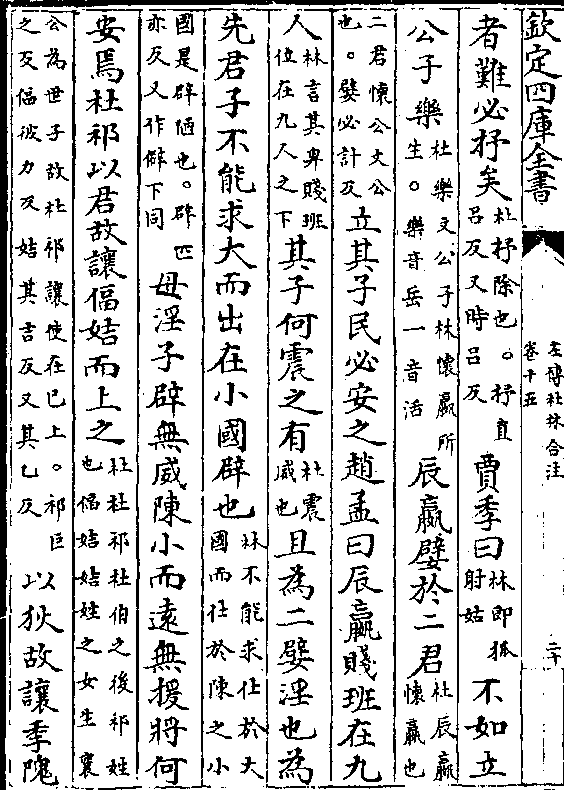 欽定四庫全書
左傳杜林合注
卷十五
二十
者難必抒矣杜抒除也。抒直吕反又時吕反賈季曰林即狐射姑不如立
公子樂杜樂文公子林懷嬴所生。樂音岳一音洛辰嬴嬖於二君杜辰嬴懷嬴也
二君懷公文公也。嬖必計反立其子民必安之趙孟曰辰嬴賤班在九
人林言其卑賤班位在九人之下其子何震之有杜震威也且為二嬖淫也為
先君子不能求大而出在小國辟也林不能求仕於大國而仕於陳之小
國是辟陋也。辟匹亦反又作僻下同母淫子辟無威陳小而遠無援將何
安焉杜祁以君故讓偪姞而上之杜杜祁杜伯之後祁姓也偪姞姞姓之女生襄
公為世子故杜祁讓使在己上。祁巨之反偪彼力反姞其吉反又其乙反以狄故讓季隗